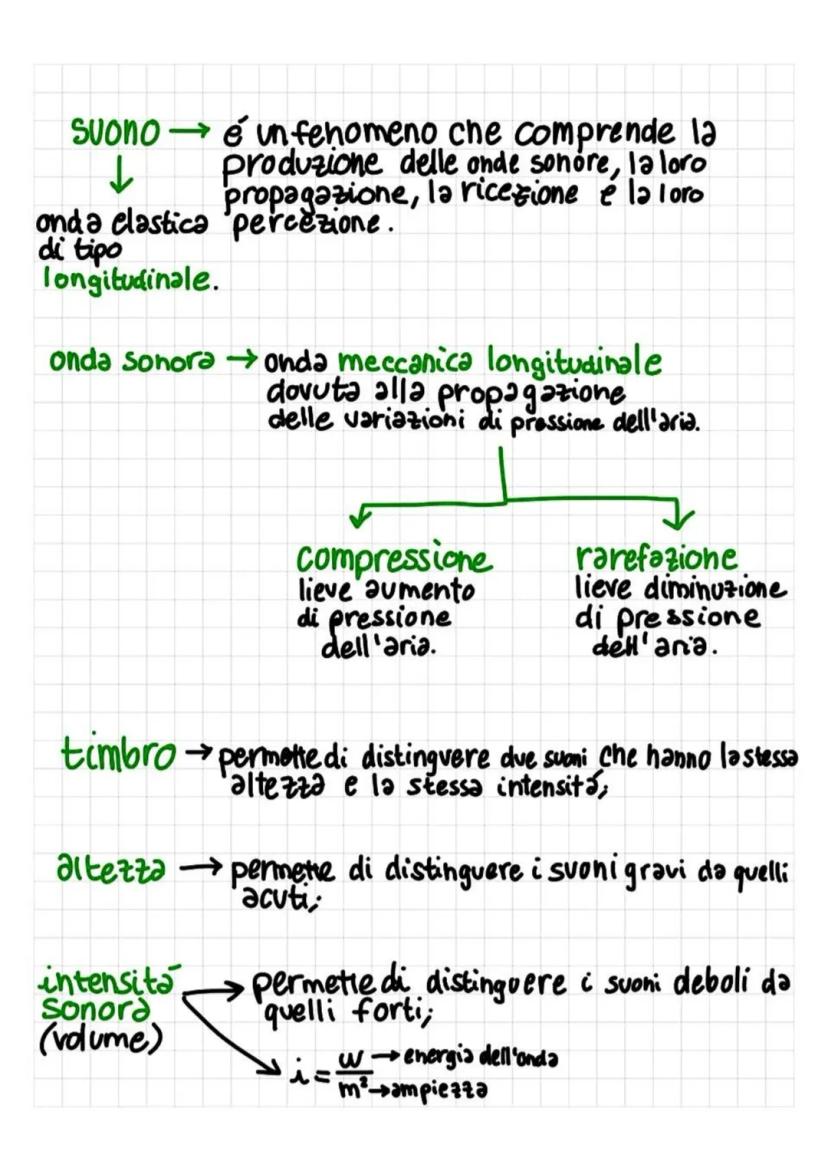 suono → é un fenomeno che comprende la
produzione delle onde sonore, la loro
propagazione, la ricezione e la loro
percezione.
onda elastica
di tipo
longitudinale.
onda sonora → onda meccanica longitudinale
dovuta alla propagazione
delle variazioni di pressione dell'aria.
compressione
lieve aumento
di pressione
dell'aria.
rarefazione
lieve diminuzione
di pressione
dell'aria.
timbro → permette di distinguere due suoni che hanno la stessa
altezza e la stessa intensitá;
altezza → permette di distinguere i suoni gravi da quelli
acuti;
intensitá
sonora
(volume)
→ permette di distinguere i suoni deboli da
quelli forti;
i = w → energia dell'onda
m² → ampiezza